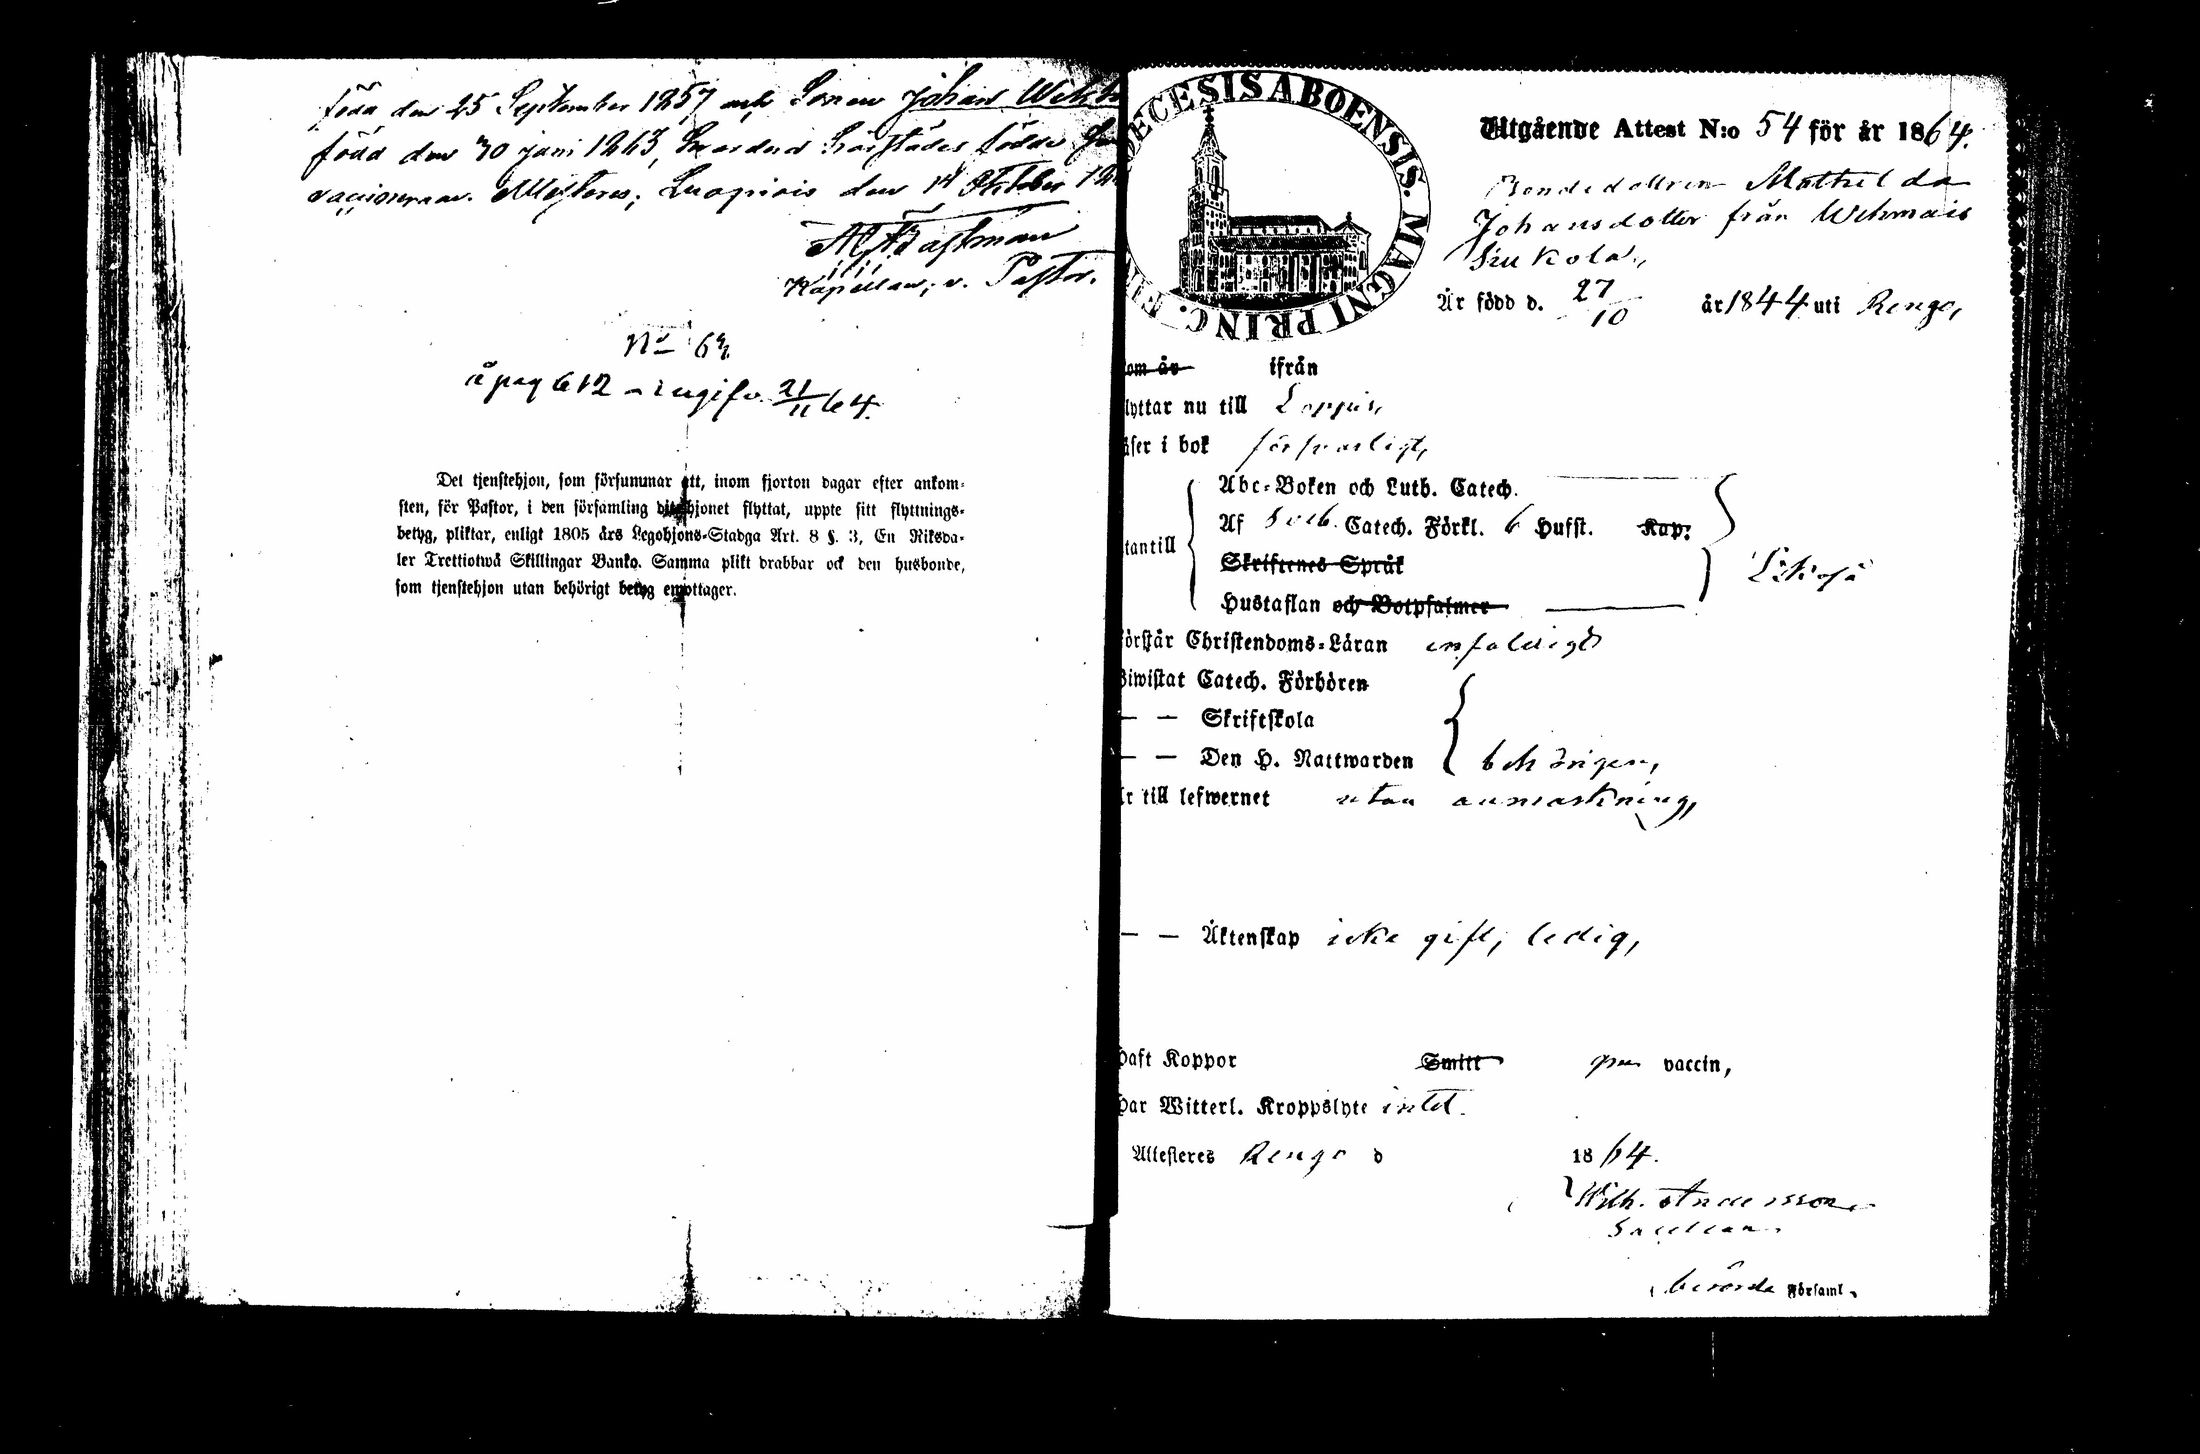 född den 25 September 1857 och Sonen Johan Wikt
född den 30 juni 1863,
Attesteras; Luopiois den 14 Oktober
Kapellan, v. Pastor.
No 63
å pag 612 utgifv. 21/11 64.
Det tjenstehjon, som försummar att, inom fjorton dagar efter ankom-
sten, för Pastor, i den församling dit hjonet flyttat, uppte sitt flyttnings-
betyg, pliktar, enligt 1805 års Legohjons-Stadga Art. 8 §. 3, En Riksda-
ler Trettiotwå Skillingar Banko. Samma plikt drabbar ock den husbonde,
som tjenstehjon utan behörigt betyg emottager.
DECESIS ABOENSIS. MAGNI PRINC. FI
Utgående Attest N:o 54 för år 1864.
Bondedottren Mathilda
Johansdotter från Wehmais
Siukola,
Är född d. 27/10 år 1844 uti Rengo,
om år ifrån
lyttar nu till Loppis,
äser i bok försvarligt,
Abc-Boken och Luth. Catech.
Af Sveb. Catech. Förkl. 6 Hufst. Kap:
tantill
Skriftenes Språk
Hustaflan och Botpsalmer
örstår Christendoms-Läran enfaldigt
Biwistat Catech. Förhören
— — Skriftskola
— — Den H. Nattwarden behörigen,
r till lefwernet utan anmärkning,
— — Äktenskap icke gift, ledig,
haft Koppor Smitt gm vaccin,
har Witterl. Kroppslyte intet.
Attesteras Rengo d 1864.
Wilh. Andersson
Församl.